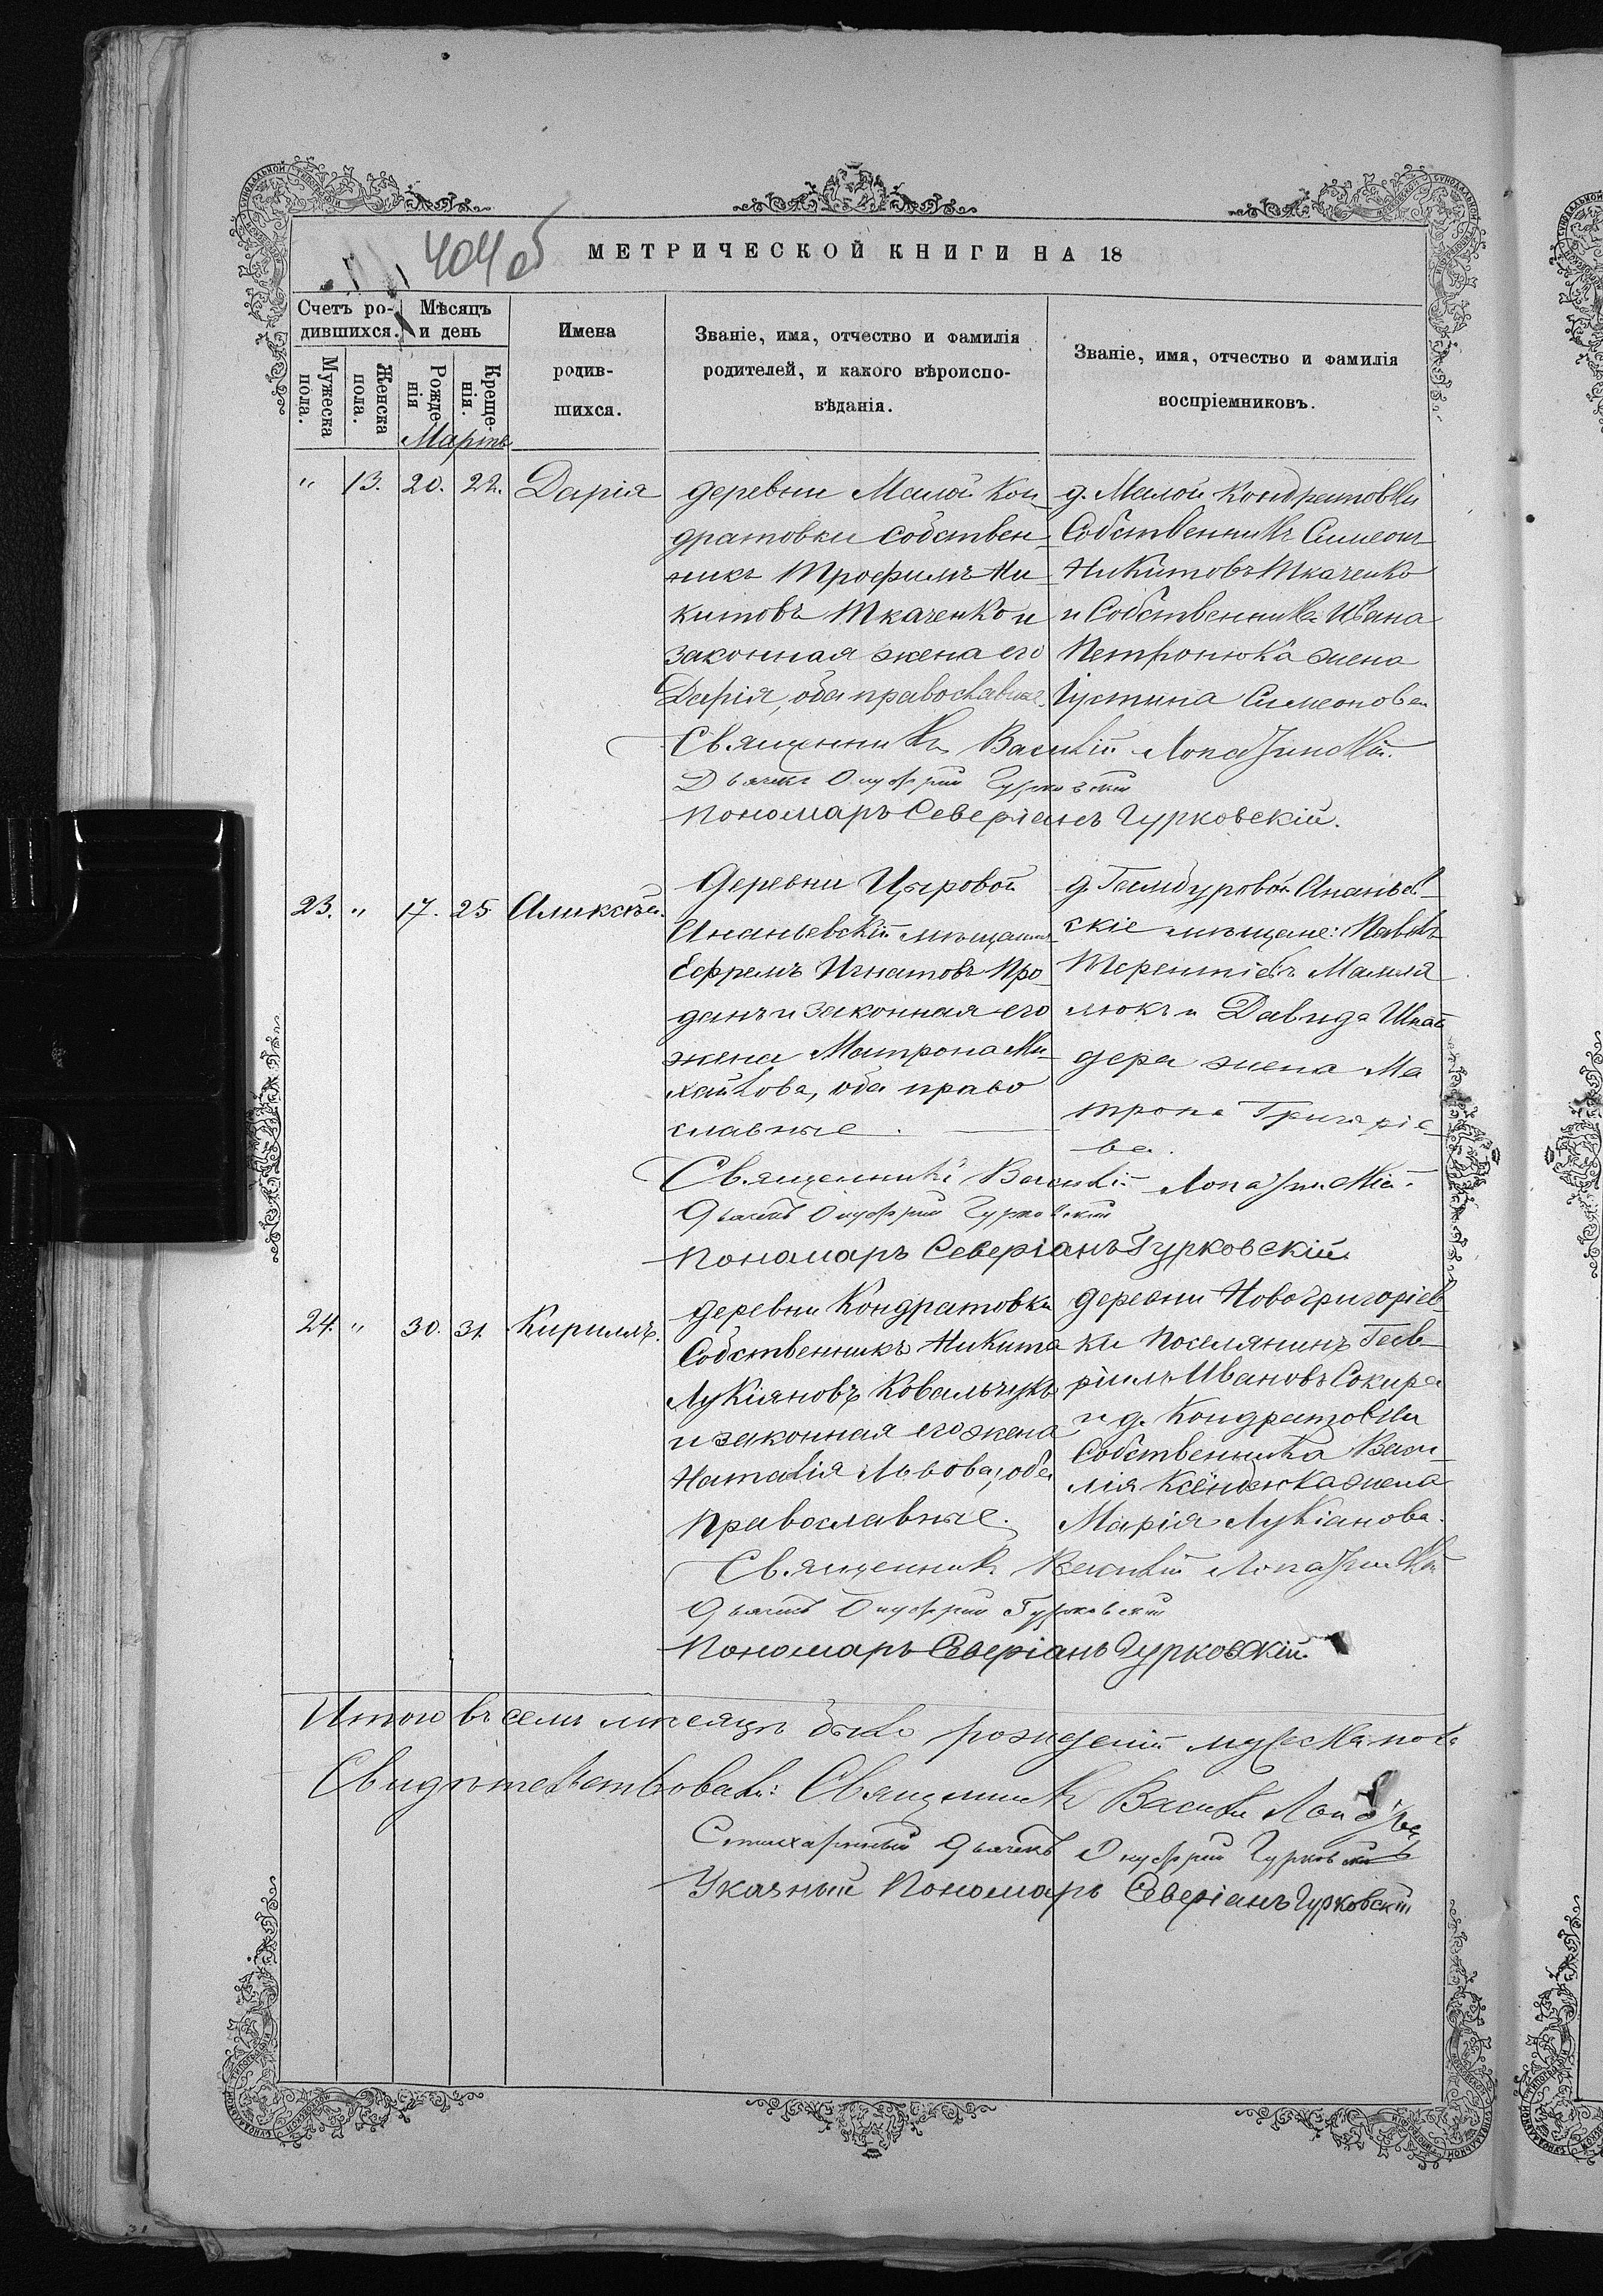 404 об
МЕТРИЧЕСКОЙ КНИГИ НА 18
Счетъ ро-
дившихся.
Мѣсяцъ
и день
Мужеска
пола.
Женска
пола.
Рожде
нія
Креще-
нія.
Имена
родив-
шихся.
Званіе, имя, отчество и фамилія
родителей, и какого вѣроиспо-
вѣданія.
Званіе, имя, отчество и фамилія
воспріемниковъ.
Мартъ
" 13. 20. 22. Дарія
деревни Малой Кон-
дратовки собствен-
никъ Трофимъ Ни-
китовъ Ткаченко и
законная жена его
Дарія, оба православные.
д. Малой Кондратовки
Собственникъ Симеонъ
Никитовъ Ткаченко
и Собственника Ивана
Петронюка жена
Іустина Симеонова
Священникъ Василій
Дьячекъ Онуфрій Гурковскій
Пономарь Северіанъ Гурковскій.
23. " 17. 25. Аликсѣй.
Деревни Цыровой
Ананьевскій мѣщанинъ
Ефремъ Игнатовъ Про-
данъ и законная его
жена Матрона Ми-
хайлова, оба право
славные.
д. Гамбуровой Ананьев-
скіе мѣщане: Павелъ
Терентіевъ Мамля
люкъ и Давида Шнай
дера жена Ма
трона Григоріе-
ва.
Священникъ Василій
Дьячекъ Онуфрій Гурковскій
Пономарь Северіанъ Гурковскій
24. " 30. 31. Кириллъ.
деревни Кондратовки
Собственникъ Никита
Лукіяновъ Ковальчукъ
и законная его жена
Наталія Львова, оба
Православные.
деревни Новогригоріев-
ки поселянинъ Гав-
ріилъ Ивановъ Сокира
и д. Кондратовки
Собственника Васи-
лія Ксёндзюка жена
Марія Лукіанова.
Священникъ Василій
Дьячекъ Онуфрій Гурковскій
Пономарь Северіанъ Гурковскій
Итого въ семъ мѣсяцѣ было рожденій мужеска пола
Свидѣтельствовали: Священникъ Василій
Стихарный Дьячекъ Онуфрій Гурковскій
Указный Пономарь Северіанъ Гурковскій